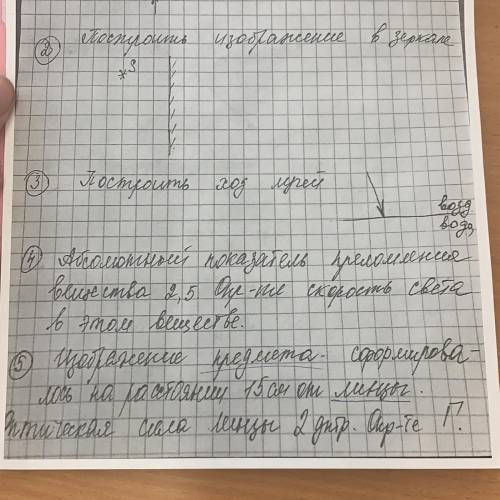 2 Построить изображение в зеркале
S
3 Построить ход лучей
возд
вода
4 Абсолютный показатель преломления
вещества 2,5 Опр-те скорость света
в этом веществе.
5 Изображение предмета сформирова-
лось на расстоянии 15см от линзы.
Оптическая сила линзы 2 дптр. Опр-те Г.